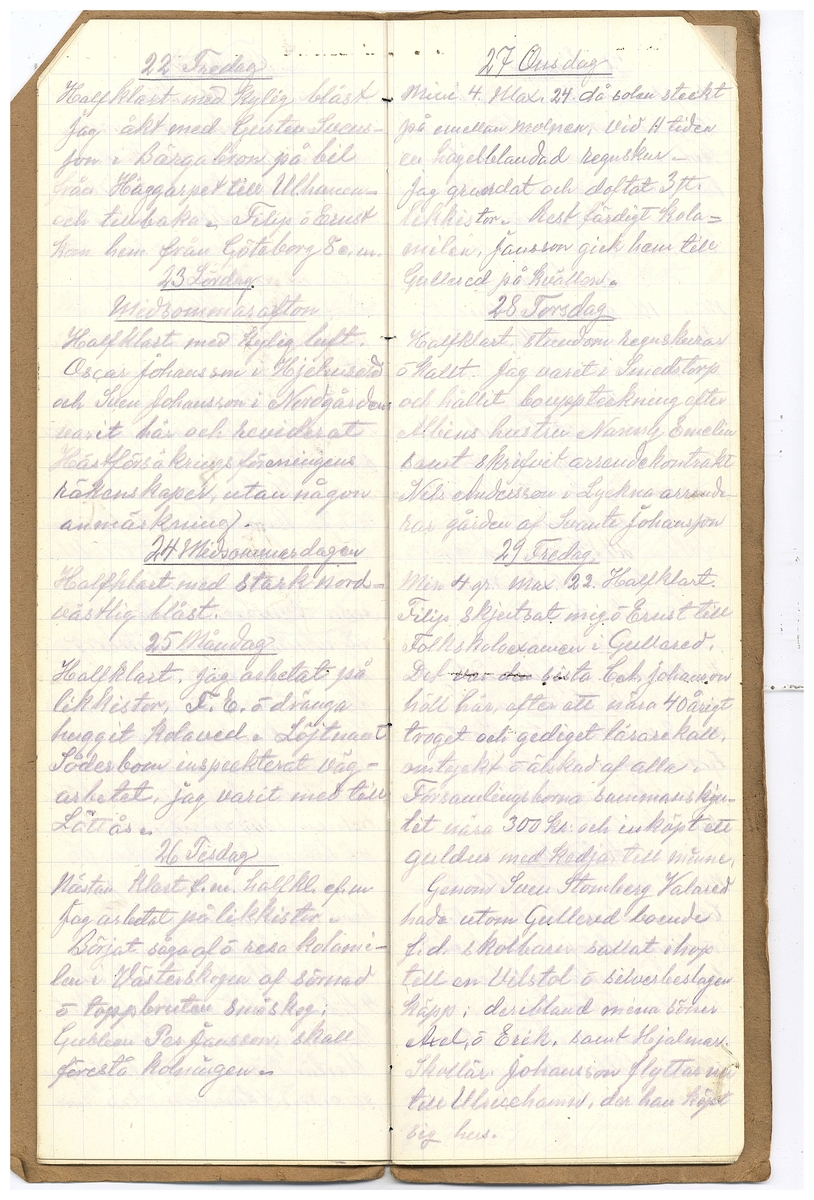 22 Fredag
Halfklart med kylig blåst
jag åkt med Gusten Svens-
son i Bärgabron på bil
från Häggarpet till Ulhamn
och tillbaka. Filip ö Ernst
kom hem från Göteborg 8 e.m.
23 Lördag
Midsommarafton
Halfklart med kylig luft.
Oscar Johansson i Hjelmsered
och Sven Johansson i Nordgården
varit här och reviderat
Hästförsäkringsföreningens
räkenskaper, utan någon
anmärkning.
24 Midsommardagen
Halfklart med stark nord-
västlig blåst.
25 Måndag
Halfklart. jag arbetat på
likkistor, F. E. ö dränga
huggit kolaved. Löjtnant
Söderbom inspekterat väg-
arbetet, jag varit med till
Löttås.
26 Tisdag
Nästan klart f.m. halfkl. ef.m
Jag arbetat på likkistor.
Börjat såga af ö resa kolami-
len i Västerskogen af sörnad
ö toppbruten småskog;
Gubben Per Jansson skall
förestå kolningen.
27 Onsdag
Mini 4. Max. 24. då solen steckt
på emellan molnen, vid 4 tiden
en hagelblandad regnskur.
Jag grundat och doltat 3 st.
likkistor. Rest färdigt kola-
milen, Jansson gick hem till
Gullered på kvällen.
28 Torsdag
Halfklart stundom regnskurar
ö kallt. Jag varit i Smedstorp
och hållit bouppteckning efter
Albins hustru Nanny Emelia
samt skrifvit arrendekontrakt
Nils Andersson i Lyckna arrende-
rar gården af Svante Johansson
29 Fredag
Min 4 gr. Max 22. Halfklart.
Filip skjutsat mig ö Ernst till
Folkskolexamen i Gullered.
Det var den sista C.A. Johansson
höll här, efter ett nära 40 årigt
troget och gediget lärarekall,
omtyckt ö älskad af alla.
Församlingsborna sammanskju-
tit nära 300 kr. och inköpt ett
guldur med kedja till minne.
Genom Sven Stomberg Valared
hade utom Gullered boende
f.d. skolbarn sallat ihop
till en Vilstol ö silverbeslagen
käpp; deribland mina söner
Axel, ö Erik. samt Hjalmar.
Skollär. Johansson flyttar nu
till Ulricehamn, der han köpt
sig hus.